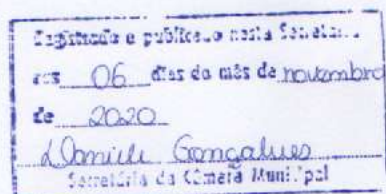 Registrado e publicado nesta Secretaria
aos 06 dias do mês de novembro
de 2020
Daniele Gonçalves
Secretária da Câmara Municipal